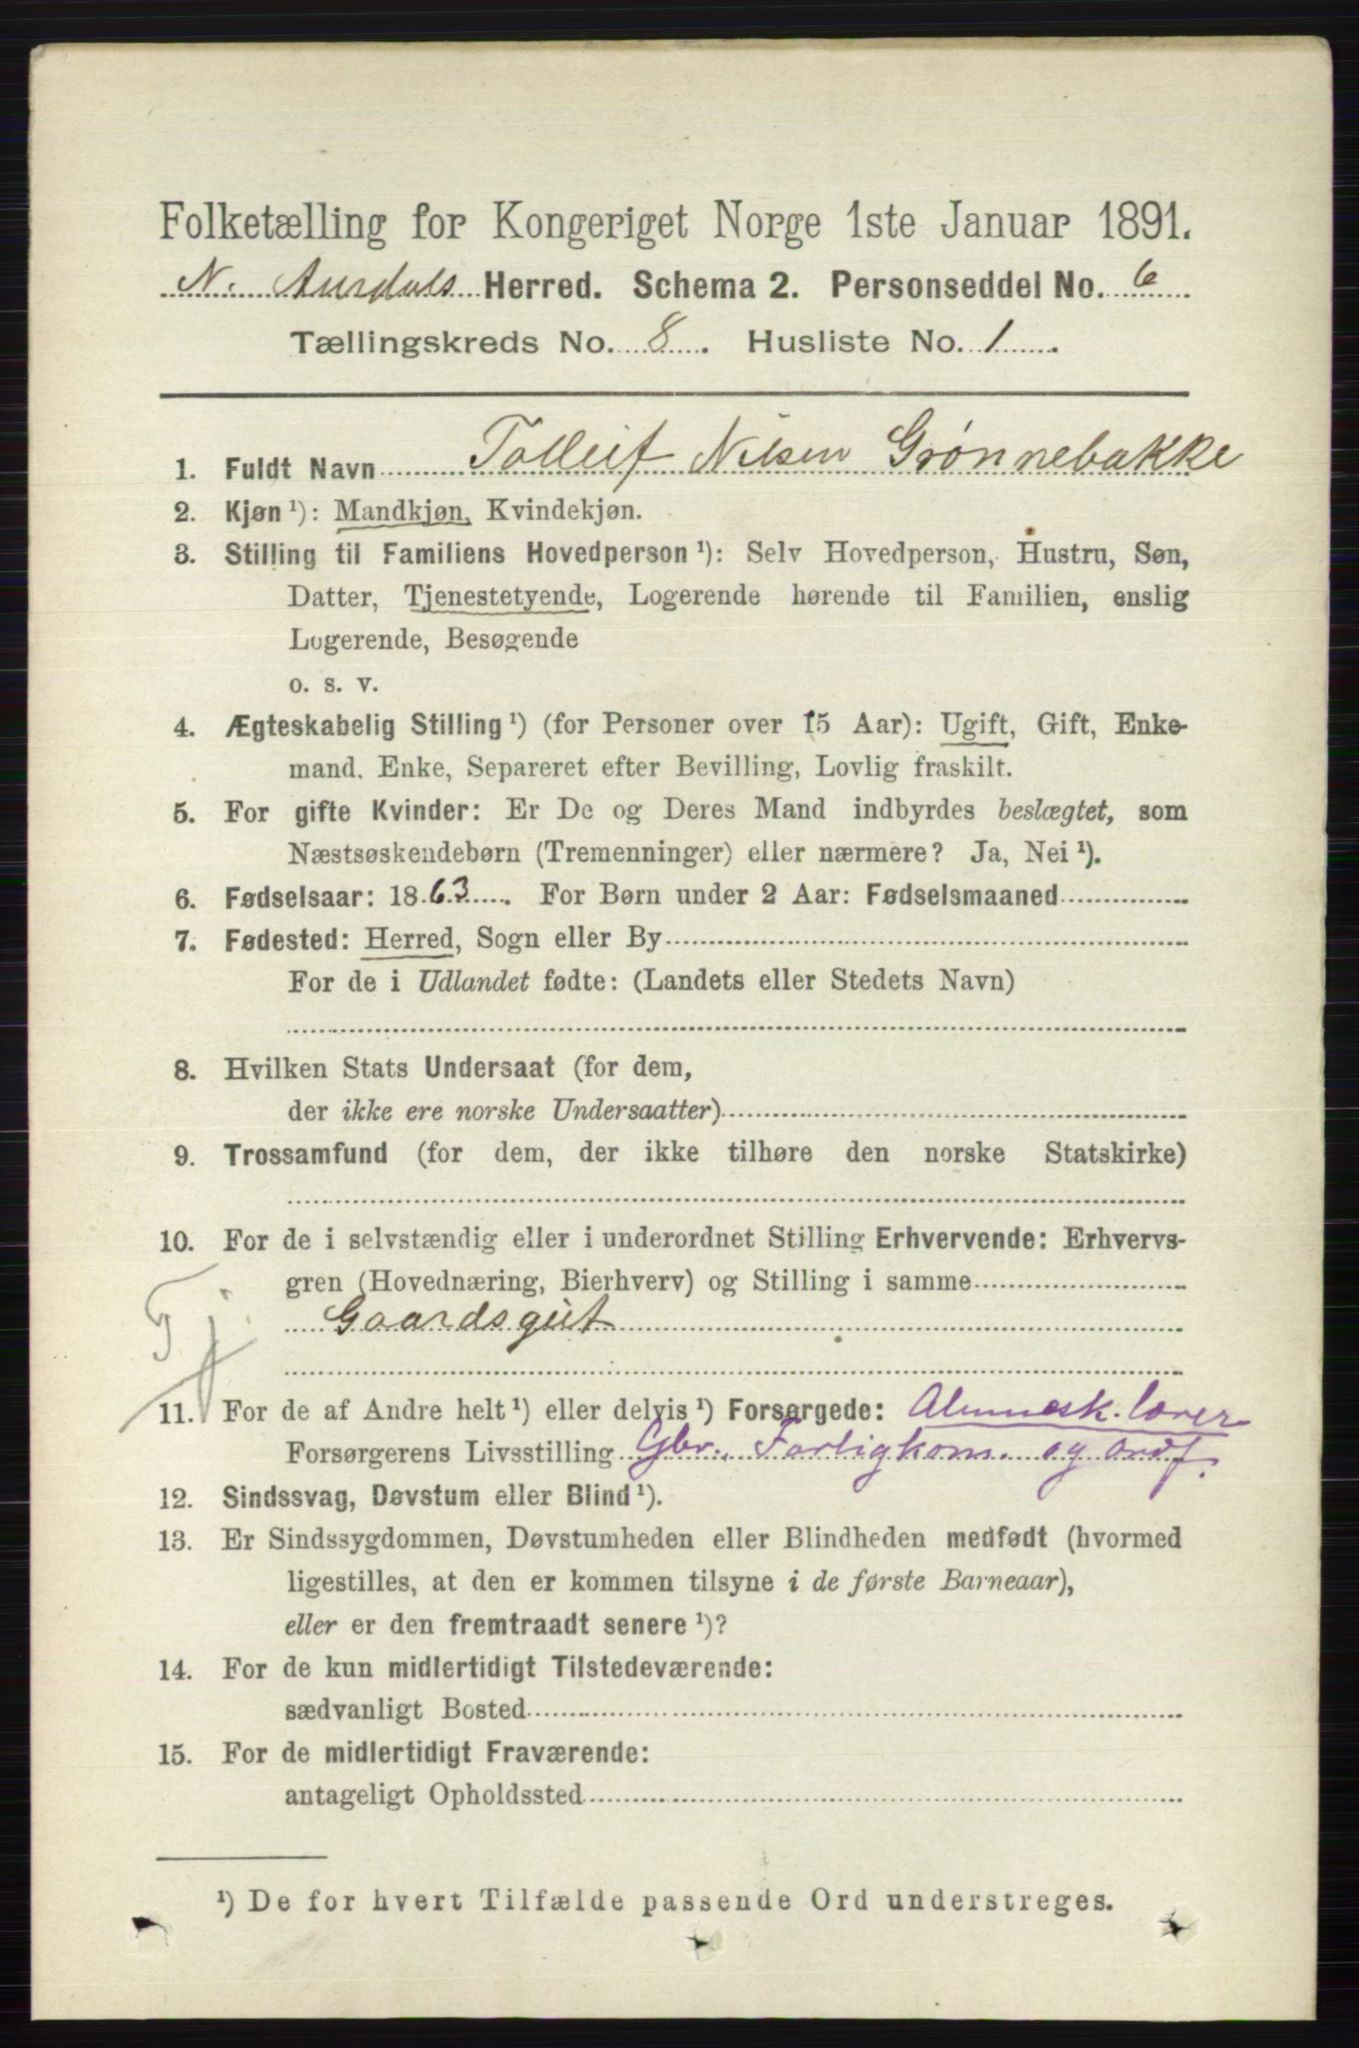 Folketælling for Kongeriget Norge 1ste Januar 1891.
N. Aurdals Herred. Schema 2. Personseddel No. 6
Tællingskreds No. 8. Husliste No. 1.
1. Fuldt Navn Tolleif Nilsen Grønnebakke
2. Kjøn ¹): Mandkjøn, Kvindekjøn.
3. Stilling til Familiens Hovedperson ¹): Selv Hovedperson, Hustru, Søn,
Datter, Tjenestetyende, Logerende hørende til Familien, enslig
Logerende, Besøgende
o. s. v.
4. Ægteskabelig Stilling ¹) (for Personer over 15 Aar): Ugift, Gift, Enke-
mand, Enke, Separeret efter Bevilling, Lovlig fraskilt.
5. For gifte Kvinder: Er De og Deres Mand indbyrdes beslægtet, som
Næstsøskendebørn (Tremenninger) eller nærmere? Ja, Nei ¹).
6. Fødselsaar: 1863. For Børn under 2 Aar: Fødselsmaaned
7. Fødested: Herred, Sogn eller By
For de i Udlandet fødte: (Landets eller Stedets Navn)
8. Hvilken Stats Undersaat (for dem,
der ikke ere norske Undersaatter)
9. Trossamfund (for dem, der ikke tilhøre den norske Statskirke)
10. For de i selvstændig eller i underordnet Stilling Erhvervende: Erhvervs-
gren (Hovednæring, Bierhverv) og Stilling i samme
Gaardsgut
Tj
11. For de af Andre helt ¹) eller delvis ¹) Forsørgede: Almuesk. lærer
Forsørgerens Livsstilling Gbr., Forligkom. og Ordf.
12. Sindssvag, Døvstum eller Blind ¹).
13. Er Sindssygdommen, Døvstumheden eller Blindheden medfødt (hvormed
ligestilles, at den er kommen tilsyne i de første Barneaar),
eller er den fremtraadt senere ¹)?
14. For de kun midlertidigt Tilstedeværende:
sædvanligt Bosted
15. For de midlertidigt Fraværende:
antageligt Opholdssted
¹) De for hvert Tilfælde passende Ord understreges.